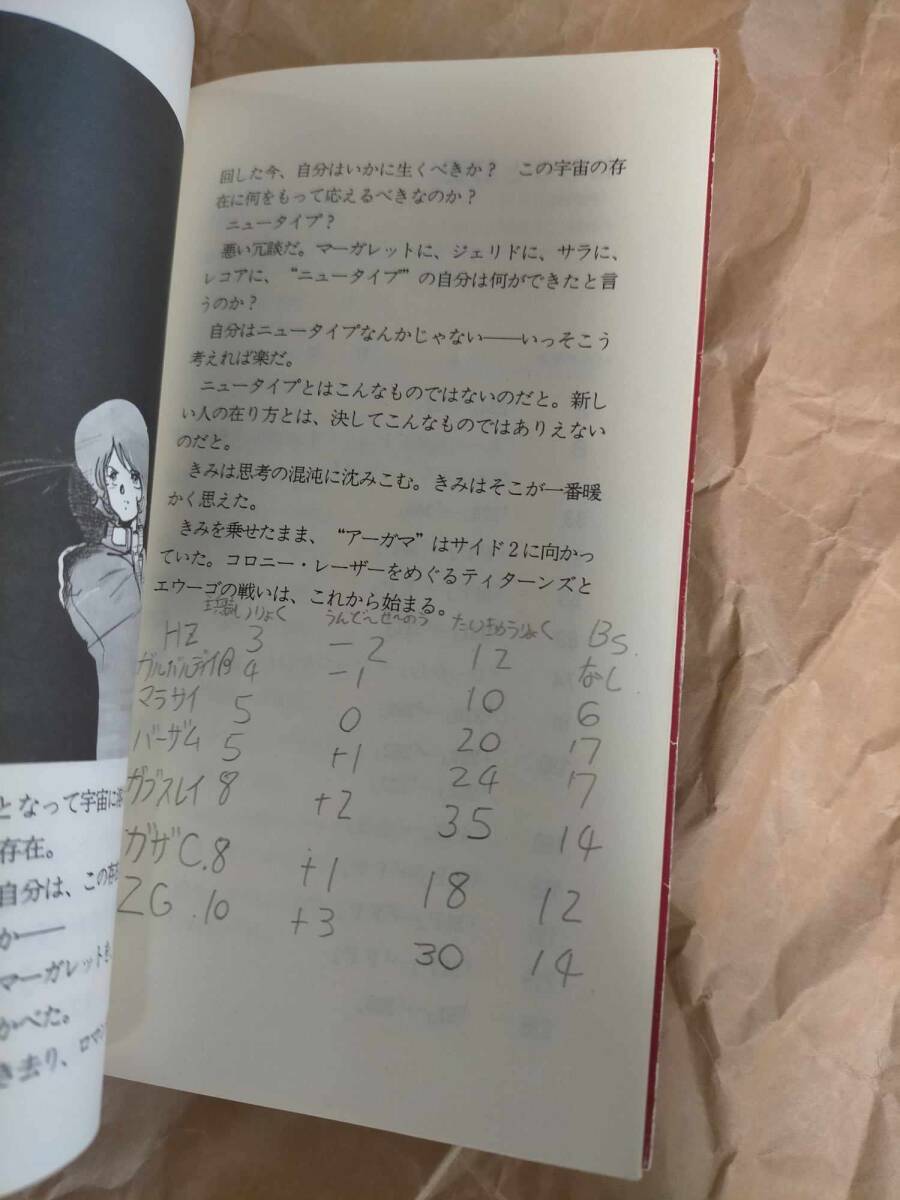 回した今、自分はいかに生くべきか? この宇宙の存
在に何をもって応えるべきなのか?
ニュータイプ?
悪い冗談だ。マーガレットに、ジェリドに、サラに、
レコアに、“ニュータイプ”の自分は何ができたと言
うのか?
自分はニュータイプなんかじゃない——いっそこう
考えれば楽だ。
ニュータイプとはこんなものではないのだと。新し
い人の在り方とは、決してこんなものではありえない
のだと。
きみは思考の混沌に沈みこむ。きみはそこが一番暖
かく思えた。
きみを乗せたまま、“アーガマ”はサイド2に向かっ
ていた。コロニー・レーザーをめぐるティターンズと
エウーゴの戦いは、これから始まる。
りょく うんどーせーのう たいきゅうりょく BS.
HZ 3 -2 12 なし
ガルバルディβ 4 -1 10 6
マラサイ 5 0 20 17
バーザム 5 +1 24 17
ガブスレイ 8 +2 35 14
ガザC. 8 +1 18 12
ZG .10 +3 30 14
となって宇宙に
存在。
自分は、この存
か——
マーガレット
かべた。
き去り、ロマ